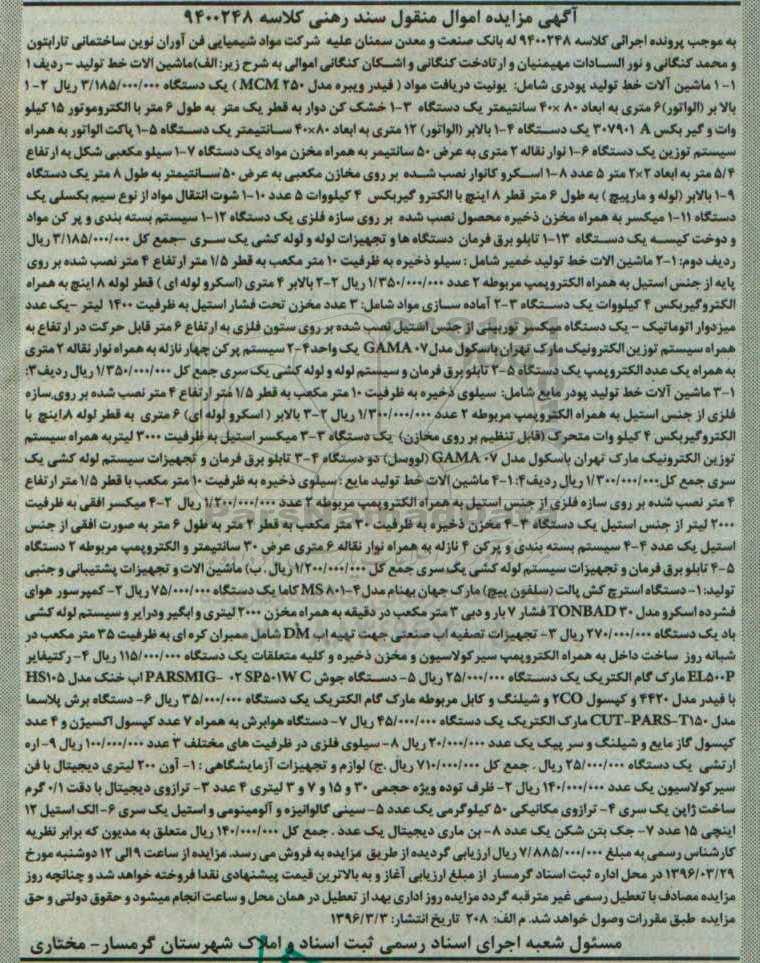 آگهی مزایده اموال منقول سند رهنی کلاسه ۹۴۰۰۲۴۸
به موجب پرونده اجرائی کلاسه ۹۴۰۰۲۴۸ له بانک صنعت و معدن سمنان علیه شرکت مواد شیمیایی فن آوران نوین ساختمانی تارابتون
و محمد کنگانی و نور السادات مهیمنیان و ارتادخت کنگانی و اشکان کنگانی اموالی به شرح زیر: الف) ماشین الات خط تولید - ردیف ۱
۱-۱ ماشین آلات خط تولید پودری شامل: یونیت دریافت مواد ( فیدر ویبره مدل MCM ۲۵۰ ) یک دستگاه ۳/۱۸۵/۰۰۰/۰۰۰ ریال ۲-۱
بالا بر (الواتور) ۶ متری به ابعاد ۸۰ ×۴۰ سانتیمتر یک دستگاه ۳-۱ خشک کن دوار به قطر یک متر به طول ۶ متر با الکتروموتور ۱۵ کیلو
وات و گیر بکس A ۳۰۷۹۰۱ یک دستگاه ۴-۱ بالابر (الواتور) ۱۲ متری به ابعاد ۸۰×۴۰ سانتیمتر یک دستگاه ۵-۱ پاکت الواتور به همراه
سیستم توزین یک دستگاه ۶-۱ نوار نقاله ۲ متری به عرض ۵۰ سانتیمر به همراه مخزن مواد یک دستگاه ۷-۱ سیلو مکعبی شکل به ارتفاع
۵/۴ متر به ابعاد ۲×۲ متر ۵ عدد ۸-۱ اسکرو کانوار نصب شده بر روی مخازن مکعبی به عرض ۵۰ سانتیمتر به طول ۸ متر یک دستگاه
۹-۱ بالابر (لوله و مارپیچ ) به طول ۶ متر قطر ۸ اینچ با الکترو گیربکس ۴ کیلووات ۵ عدد ۱۰-۱ شوت انتقال مواد از نوع سیم بکسلی یک
دستگاه ۱۱-۱ میکسر به همراه مخزن ذخیره محصول نصب شده بر روی سازه فلزی یک دستگاه ۱۲-۱ سیستم بسته بندی و پر کن مواد
و دوخت کیسه یک دستگاه ۱۳-۱ تابلو برق فرمان دستگاه ها و تجهیزات لوله و لوله کشی یک سری -جمع کل ۳/۱۸۵/۰۰۰/۰۰۰ ریال
ردیف دوم: ۱-۲ ماشین الات خط تولید خمیر شامل : سیلو ذخیره به ظرفیت ۱۰ متر مکعب به قطر ۱/۵ متر ارتفاع ۴ متر نصب شده بر روی
پایه از جنس استیل به همراه الکتروپمپ مربوطه ۲ عدد ۱/۳۵۰/۰۰۰/۰۰۰ ریال ۲-۲ بالابر ۴ متری (اسکرو لوله ای ) قطر لوله ۸ اینچ به همراه
الکتروگیربکس ۴ کیلووات یک دستگاه ۳-۲ آماده سازی مواد شامل: ۳ عدد مخزن تحت فشار استیل به ظرفیت ۱۴۰۰ لیتر -یک عدد
میزدوار اتوماتیک - یک دستگاه میکسر توربینی از جنس استیل نصب شده بر روی ستون فلزی به ارتفاع ۶ متر قابل حرکت در ارتفاع به
همراه سیستم توزین الکترونیک مارک تهران باسکول مدل GAMA ۰۷ یک واحد ۴-۲ سیستم پرکن چهار نازله به همراه نوار نقاله ۲ متری
به همراه یک عدد الکتروپمپ یک دستگاه ۵-۲ تابلو برق فرمان و سیستم لوله و لوله کشی یک سری جمع کل ۱/۳۵۰/۰۰۰/۰۰۰ ریال ردیف ۳:
۱-۳ ماشین آلات خط تولید پودر مایع شامل: سیلوی ذخیره به ظرفیت ۱۰ متر مکعب به قطر ۱/۵ متر ارتفاع ۴ متر نصب شده بر روی سازه
فلزی از جنس استیل به همراه الکتروپمپ مربوطه ۲ عدد ۱/۳۰۰/۰۰۰/۰۰۰ ریال ۲-۳ بالابر ( اسکرو لوله ای) ۶ متری به قطر لوله ۸ اینچ با
الکتروگیربکس ۴ کیلو وات متحرک (قابل تنظیم بر روی مخازن) یک دستگاه ۳-۳ میکسر استیل به ظرفیت ۳۰۰۰ لیتر به همراه سیستم
توزین الکترونیک مارک تهران باسکول مدل GAMA ۰۷ (لووسل) دو دستگاه ۴-۳ تابلو برق فرمان و تجهیزات سیستم لوله کشی یک
سری جمع کل ۱/۳۰۰/۰۰۰/۰۰۰ ریال ردیف ۴: ۱-۴ ماشین الات خط تولید مایع : سیلوی ذخیره به ظرفیت ۱۰ متر مکعب با قطر ۱/۵ متر ارتفاع
۴ متر نصب شده بر روی سازه فلزی از جنس استیل به همراه الکتروپمپ مربوطه ۲ عدد ۱/۲۰۰/۰۰۰/۰۰۰ ریال ۲-۴ میکسر افقی به ظرفیت
۲۰۰۰ لیتر از جنس استیل یک دستگاه ۳-۴ مخزن ذخیره به ظرفیت ۳۰ متر مکعب به قطر ۲ متر به طول ۶ متر به صورت افقی از جنس
استیل یک عدد ۴-۴ سیستم بسته بندی و پرکن ۴ نازله به همراه نوار نقاله ۶ متری عرض ۳۰ سانتیمتر و الکتروپمپ مربوطه ۲ دستگاه
۵-۴ تابلو برق فرمان و تجهیزات سیستم لوله کشی یک سری جمع کل ۱/۲۰۰/۰۰۰/۰۰۰ ریال . ب) ماشین الات و تجهیزات پشتیبانی و جنبی
تولید: ۱- دستگاه استرچ کش پالت (سلفون پیچ) مارک جهان بهنام مدل MS ۸۰۱-۴ کاما یک دستگاه ۷۵/۰۰۰/۰۰۰ ریال ۲- کمپرسور هوای
فشرده اسکرو مدل TONBAD ۳۰ فشار ۷ بار و دبی ۳ متر مکعب در دقیقه به همراه مخزن ۲۰۰۰ لیتری و ابگیر ودرایر و سیستم لوله کشی
باد یک دستگاه ۲۷۰/۰۰۰/۰۰۰ ریال ۳- تجهیزات تصفیه اب صنعتی جهت تهیه اب DM شامل ممبران کره ای به ظرفیت ۳۵ متر مکعب در
شبانه روز ساخت داخل به همراه الکتروپمپ سیرکولاسیون و مخزن ذخیره و کلیه متعلقات یک دستگاه ۱۱۵/۰۰۰/۰۰۰ ریال ۴- رکتیفایر
EL۵۰۰P مارک گام الکتریک یک دستگاه ۲۵/۰۰۰/۰۰۰ ریال ۵- دستگاه جوش PARSMIG- ۰۲ SP۵۰۱W C اب خنک مدل HS۱۰۵
با فیدر مدل ۴۴۲۰ و کپسول ۲CO و شیلنگ و کابل مربوطه مارک گام الکتریک یک دستگاه ۳۵/۰۰۰/۰۰۰ ریال ۶- دستگاه برش پلاسما
مدل CUT-PARS-T۱۵۰ مارک الکتریک یک دستگاه ۴۵/۰۰۰/۰۰۰ ریال ۷- دستگاه هوابرش به همراه ۷ عدد کپسول اکسیژن و ۴ عدد
کپسول گاز مایع و شیلنگ و سر پیک یک عدد ۲۰/۰۰۰/۰۰۰ ریال ۸- سیلوی فلزی در ظرفیت های مختلف ۳ عدد ۱۰۰/۰۰۰/۰۰۰ ریال ۹- اره
ارتشی یک دستگاه ۲۵/۰۰۰/۰۰۰ ریال . جمع کل ۷۱۰/۰۰۰/۰۰۰ ریال .ج) لوازم و تجهیزات آزمایشگاهی : ۱- آون ۲۰۰ لیتری دیجیتال با فن
سیرکولاسیون یک عدد ۱۴۰/۰۰۰/۰۰۰ ریال ۲- ظرف توده ویژه حجمی ۳۰ و ۱۵ و ۷ و ۳ لیتری ۴ عدد ۳- ترازوی دیجیتال با دقت ۰/۱ گرم
ساخت ژاپن یک سری ۴- ترازوی مکانیکی ۵۰ کیلوگرمی یک عدد ۵- سینی گالوانیزه و آلومینومی و استیل یک سری ۶- الک استیل ۱۲
اینچی ۱۵ عدد ۷- جک بتن شکن یک عدد ۸- بن ماری دیجیتال یک عدد . جمع کل ۱۴۰/۰۰۰/۰۰۰ ریال متعلق به مدیون که برابر نظریه
کارشناس رسمی به مبلغ ۷/۸۸۵/۰۰۰/۰۰۰ ریال ارزیابی گردیده از طریق مزایده به فروش می رسد. مزایده از ساعت ۹ الی ۱۲ دوشنبه مورخ
۱۳۹۶/۰۳/۲۹ در محل اداره ثبت اسناد گرمسار از مبلغ ارزیابی آغاز و به بالاترین قیمت پیشنهادی نقدا فروخته خواهد شد و چنانچه روز
مزایده مصادف با تعطیل رسمی غیر مترقبه گردد مزایده روز اداری بهد از تعطیل در همان محل و ساعت انجام میشود و حقوق دولتی و حق
مزایده طبق مقررات وصول خواهد شد. م الف: ۲۰۸ تاریخ انتشار: ۱۳۹۶/۳/۳
مسئول شعبه اجرای اسناد رسمی ثبت اسناد و املاک شهرستان گرمسار- مختاری